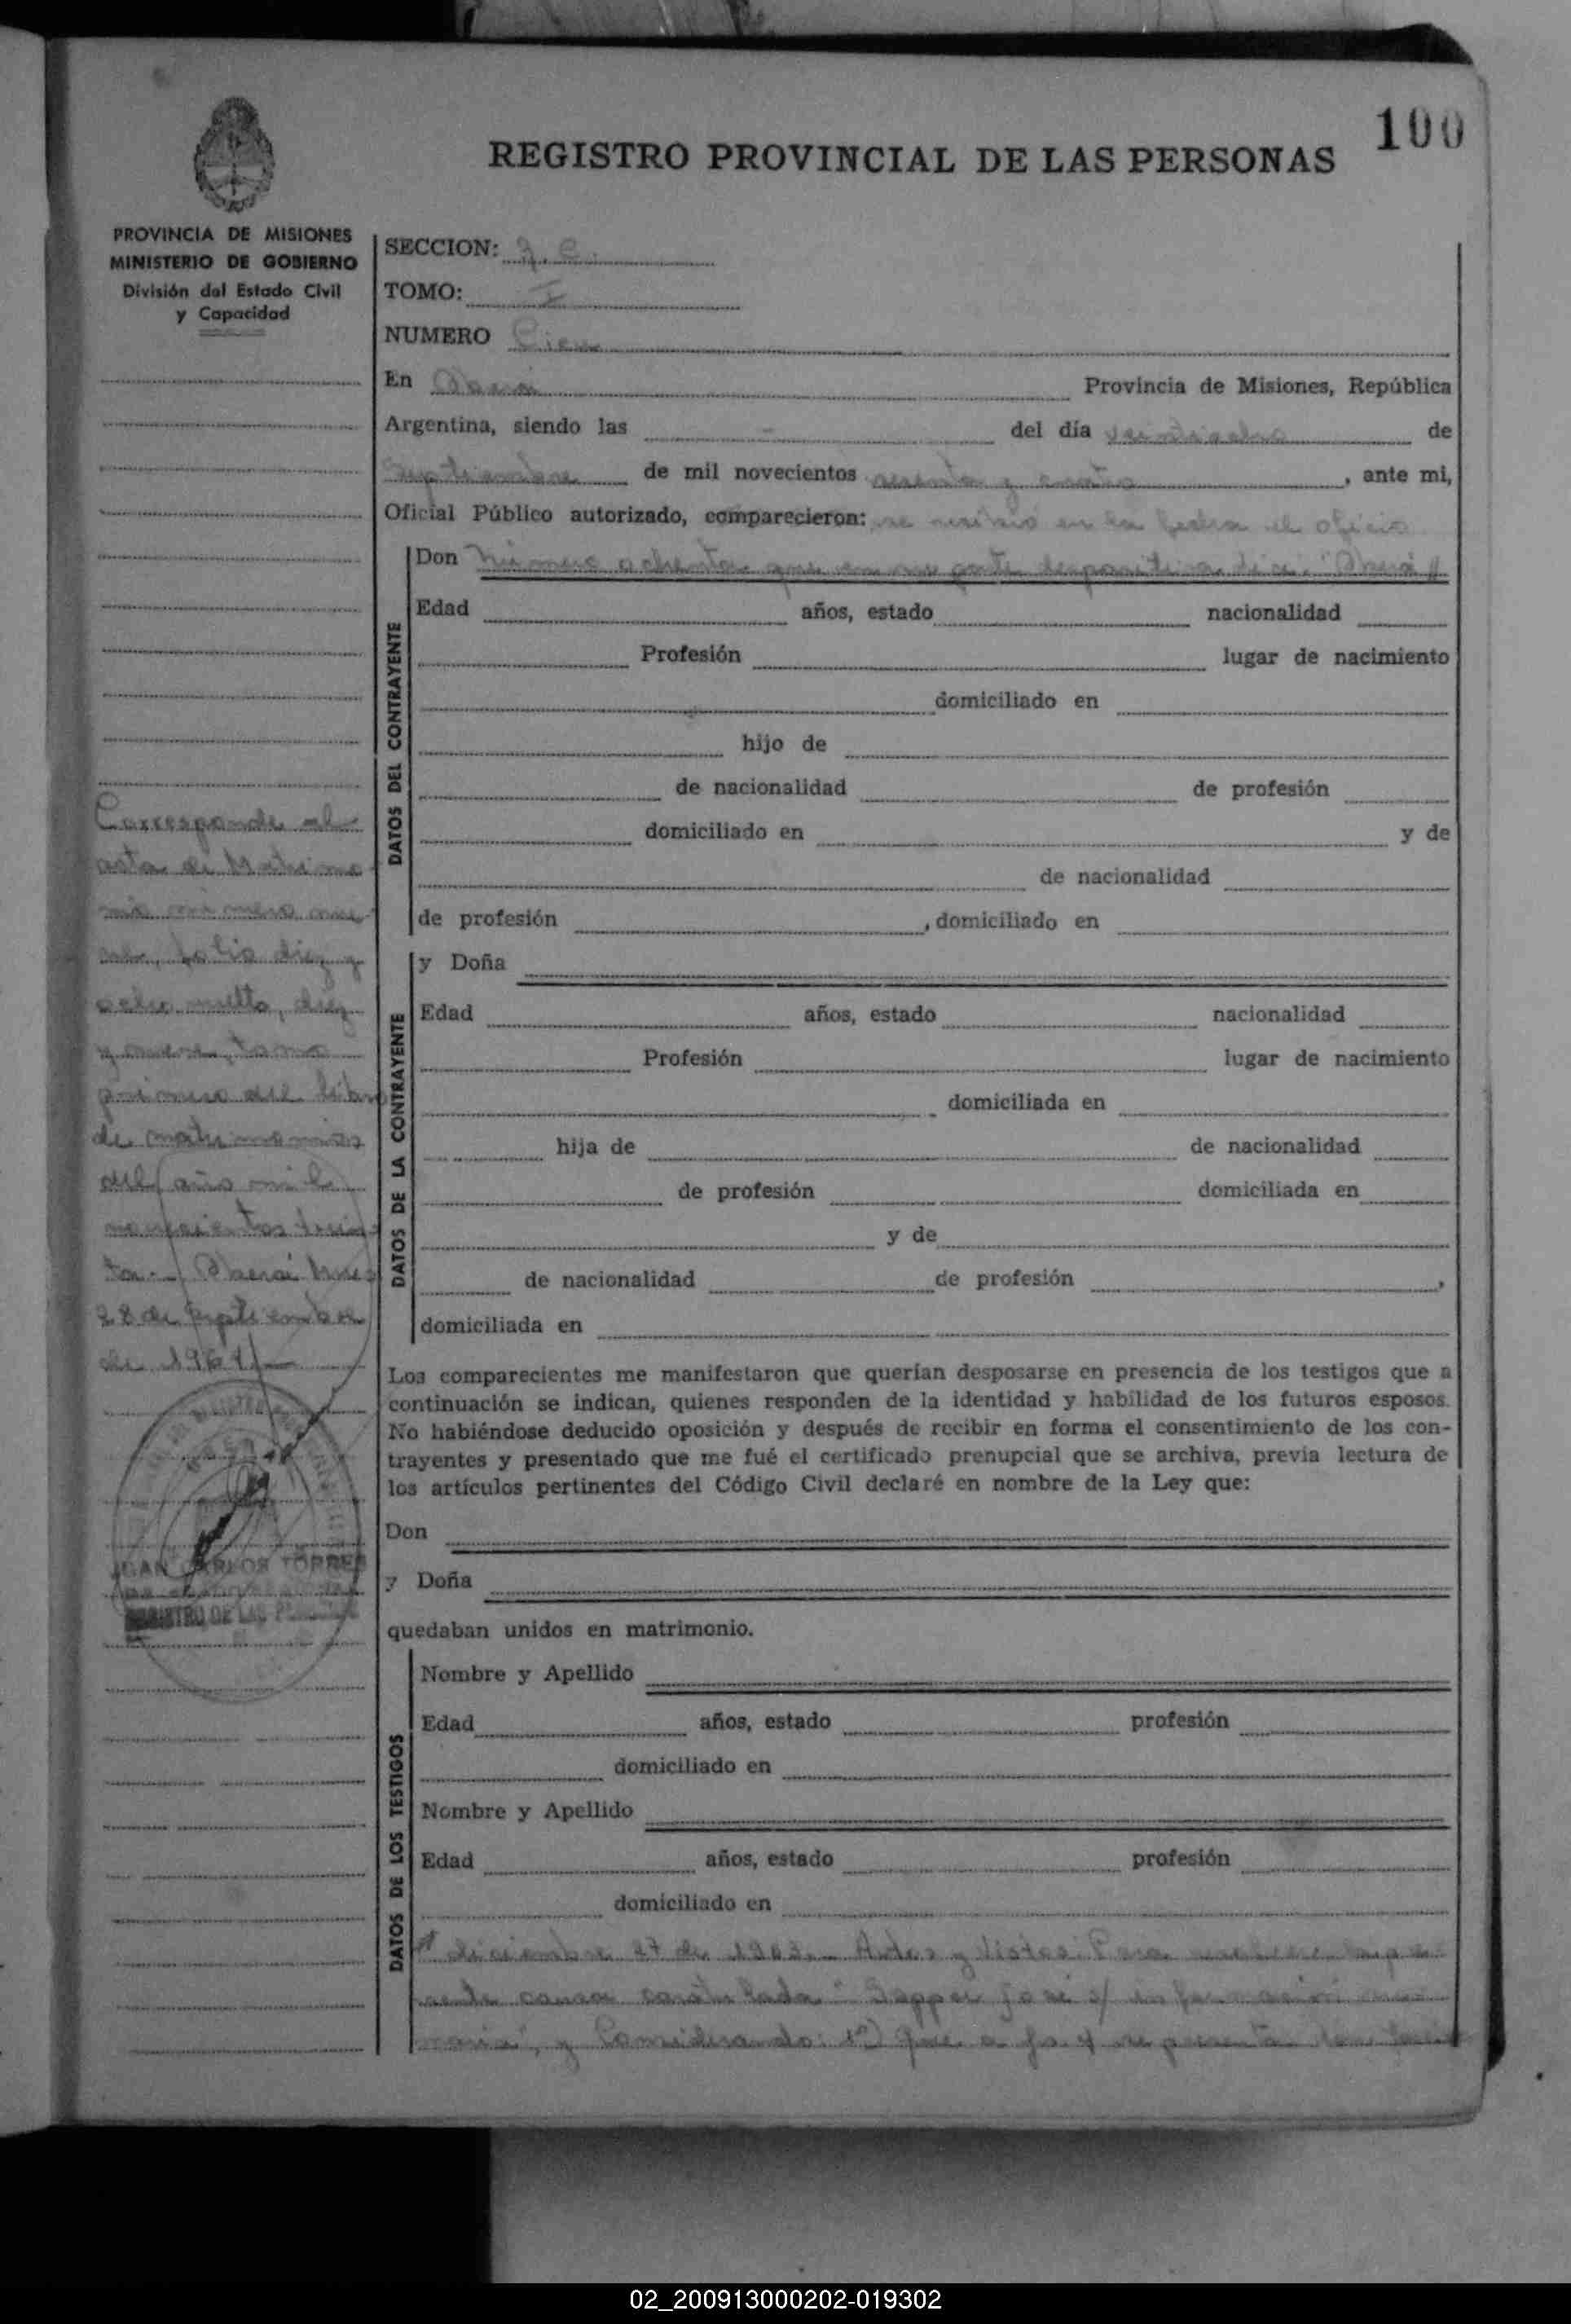 100
REGISTRO PROVINCIAL DE LAS PERSONAS
PROVINCIA DE MISIONES
MINISTERIO DE GOBIERNO
División del Estado Civil
y Capacidad
SECCION:
TOMO: I
NUMERO Cien
En Oberá Provincia de Misiones, República
Argentina, siendo las - del día veintiocho de
Septiembre de mil novecientos sesenta y cuatro, ante mi,
Oficial Público autorizado, comparecieron: se recibió en la fecha el oficio
DATOS DEL CONTRAYENTE
Don número ochenta que en su parte dispositiva dice: "Oberá //
Edad años, estado nacionalidad
Profesión lugar de nacimiento
domiciliado en
hijo de
de nacionalidad de profesión
domiciliado en y de
de nacionalidad
de profesión , domiciliado en
DATOS DE LA CONTRAYENTE
y Doña
Edad años, estado nacionalidad
Profesión lugar de nacimiento
domiciliada en
hija de de nacionalidad
de profesión domiciliada en
y de
de nacionalidad de profesión ,
domiciliada en
Los comparecientes me manifestaron que querían desposarse en presencia de los testigos que a
continuación se indican, quienes responden de la identidad y habilidad de los futuros esposos.
No habiéndose deducido oposición y después de recibir en forma el consentimiento de los con-
trayentes y presentado que me fué el certificado prenupcial que se archiva, previa lectura de
los artículos pertinentes del Código Civil declaré en nombre de la Ley que:
Don
y Doña
quedaban unidos en matrimonio.
DATOS DE LOS TESTIGOS
Nombre y Apellido
Edad años, estado profesión
domiciliado en
Nombre y Apellido
Edad años, estado profesión
domiciliado en
// diciembre 27 de 1963.- Autos y Vistos: Para resolver la pre-
sente causa caratulada "José s/ información suma-
ria", y Considerando: 1º) Que a fs. 4 se presenta don
Corresponde al
acta de Matrimo-
nio número nue-
ve, folio diez y
ocho vuelto, diez
y nueve, tomo
primero del libro
de matrimonios
del año mil
novecientos trein-
ta.- Oberá Mnes
28 de septiembre
de 1964
JUAN CARLOS TORRES
REGISTRO DE LAS PERSONAS
02_200913000202-019302